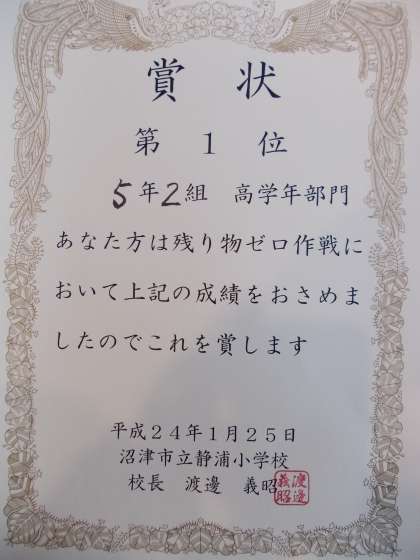 賞状
第１位
5年2組 高学年部門
あなた方は残り物ゼロ作戦に
おいて上記の成績をおさめま
したのでこれを賞します
平成２４年１月２５日
沼津市立静浦小学校
校長 渡邊 義昭
渡邊義昭